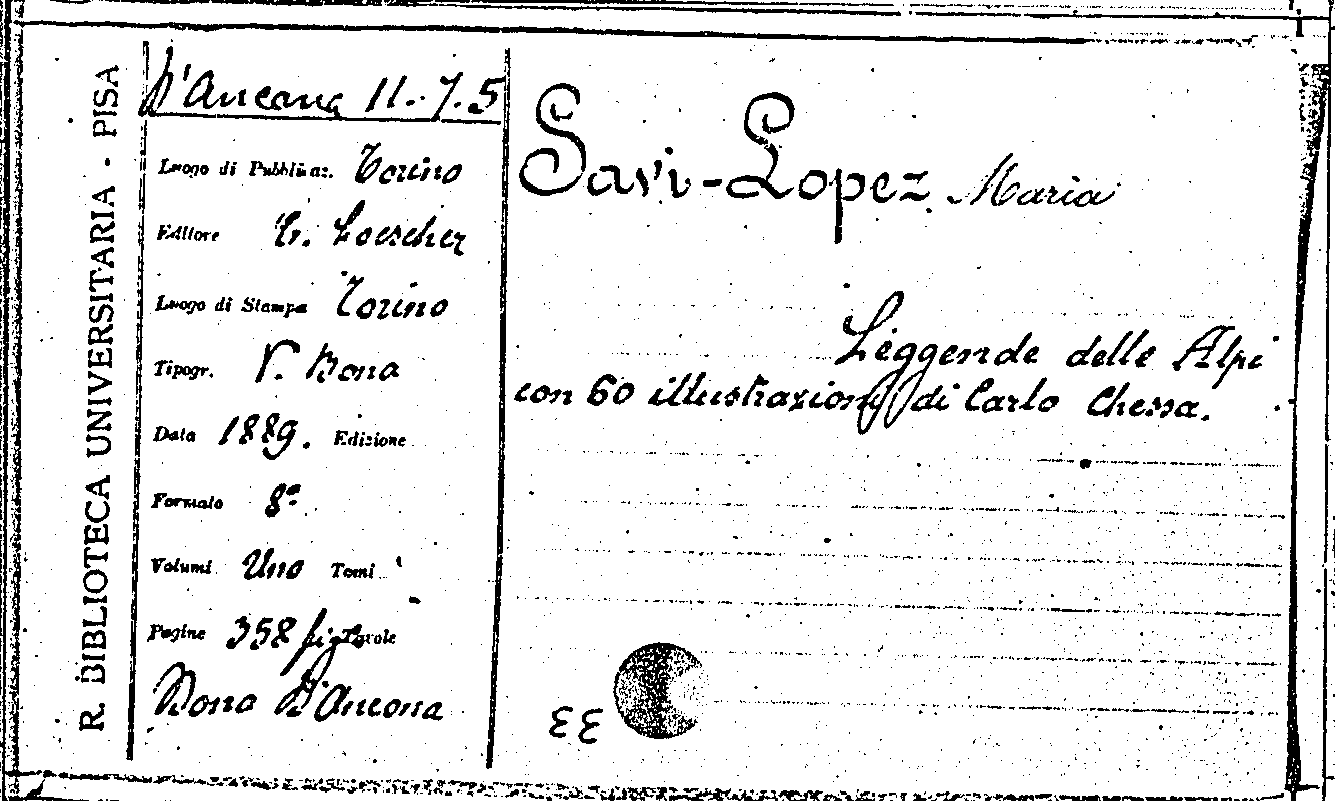 R. BIBLIOTECA UNIVERSITARIA - PISA
D'Ancona 11.7.5
Luogo di Pubblicaz. Torino
Editore E. Loescher
Luogo di Stampa Torino
Tipogr. V. Bona
Data 1889. Edizione
Formato 8°
Volumi Uno Tomi
Pagine 358 fig. Tavole
Dono D'Ancona
Savi-Lopez Maria
Leggende delle Alpi
con 60 illustrazioni di Carlo Chessa.